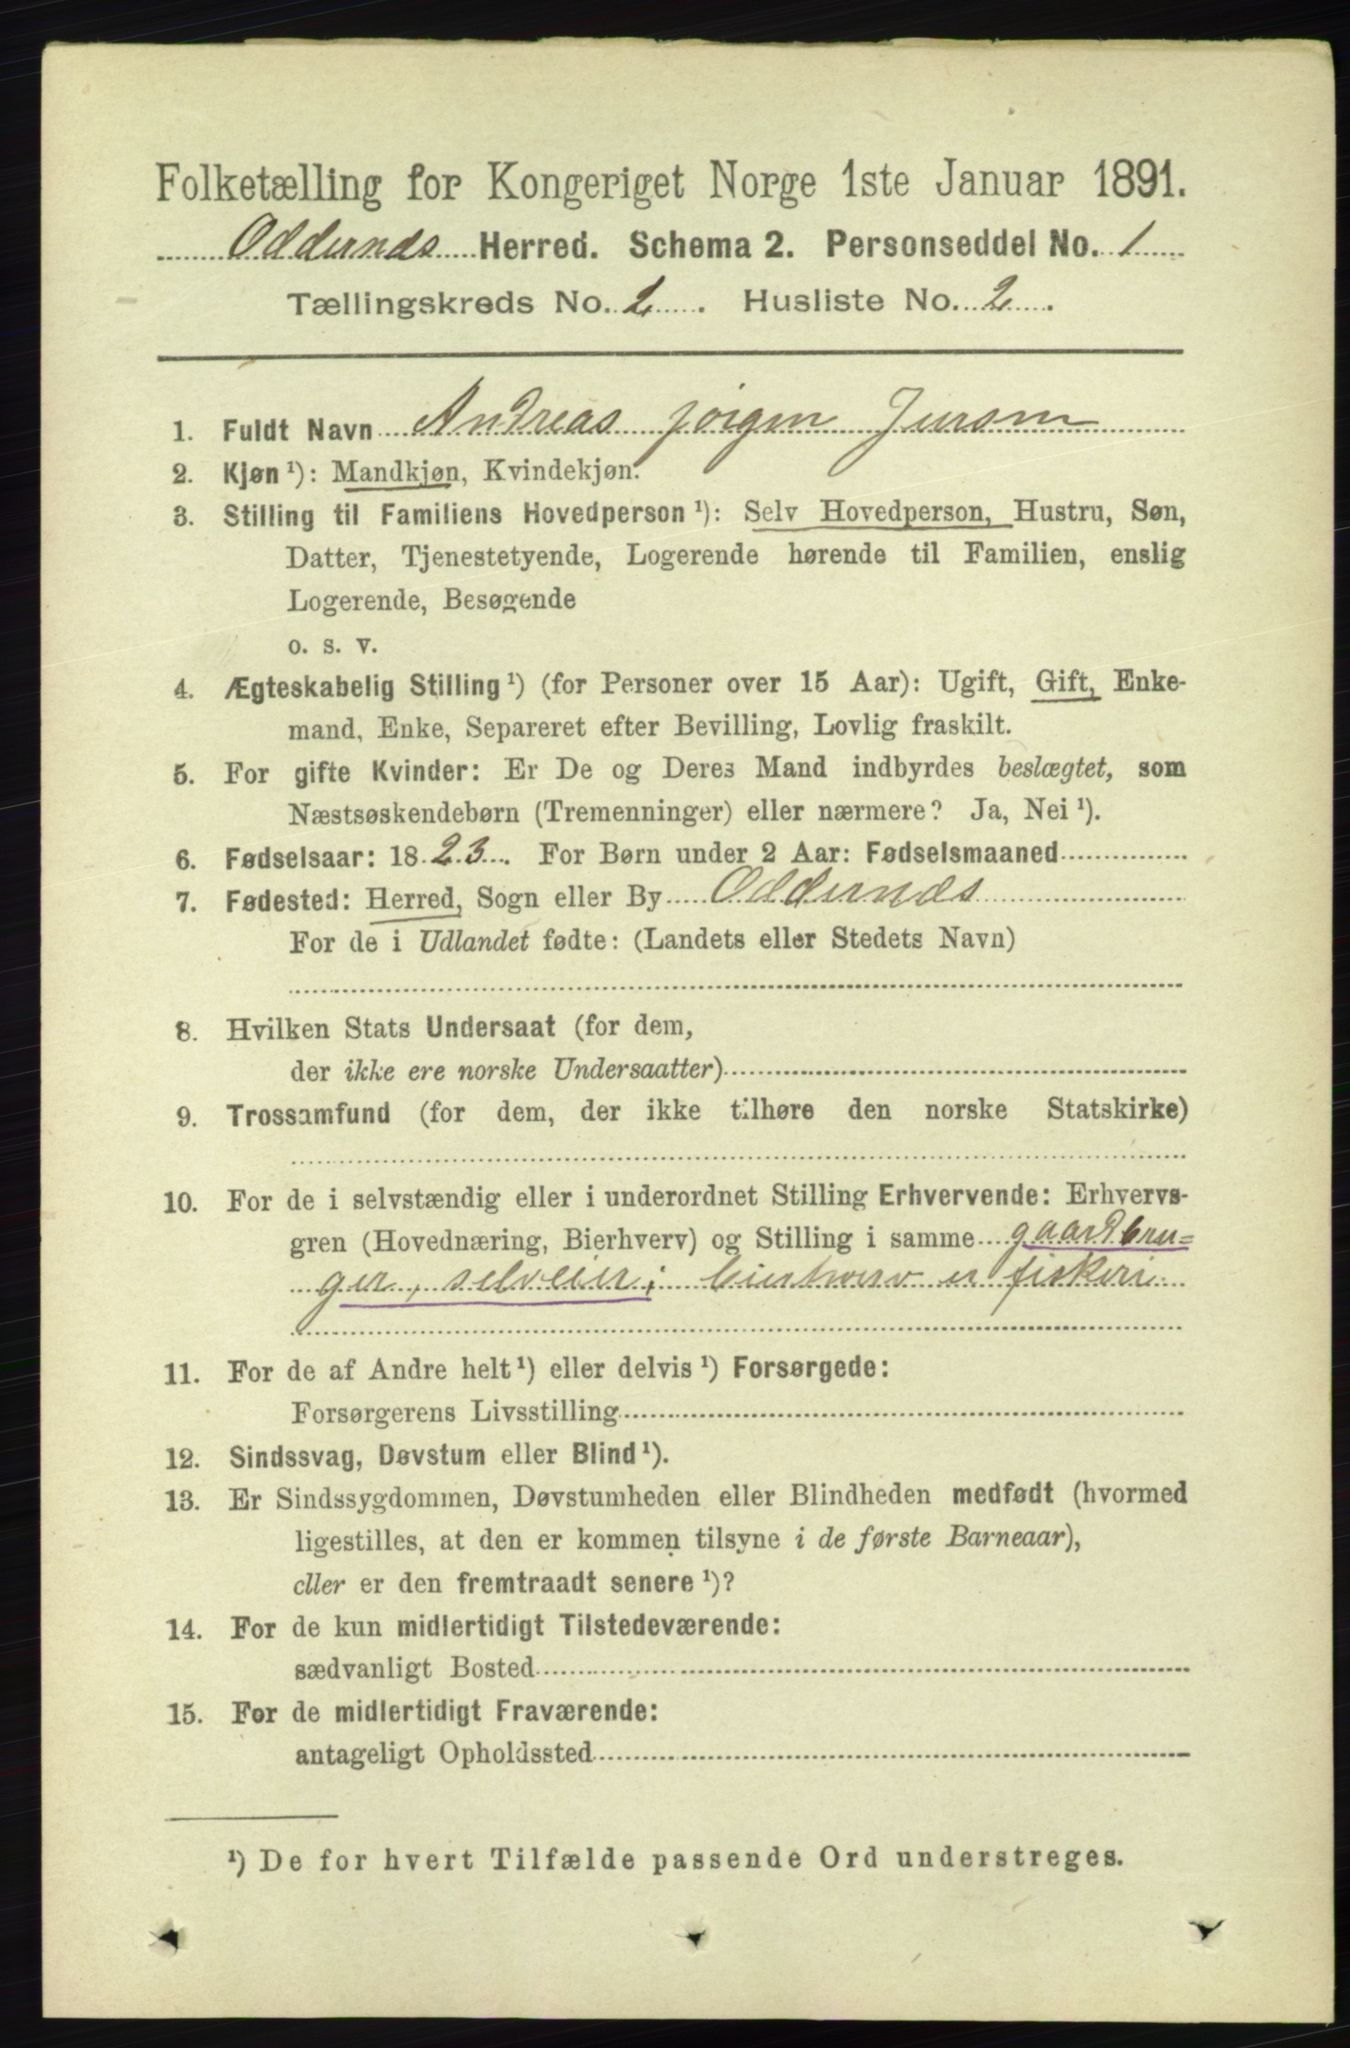 Folketælling for Kongeriget Norge 1ste Januar 1891.
Oddernes Herred. Schema 2. Personseddel No. 1
Tællingskreds No. 2. Husliste No. 2.
1. Fuldt Navn Andreas Jørgen
2. Kjøn ¹): Mandkjøn, Kvindekjøn.
3. Stilling til Familiens Hovedperson ¹): Selv Hovedperson, Hustru, Søn,
Datter, Tjenestetyende, Logerende hørende til Familien, enslig
Logerende, Besøgende
o. s. v.
4. Ægteskabelig Stilling ¹) (for Personer over 15 Aar): Ugift, Gift, Enke-
mand, Enke, Separeret efter Bevilling, Lovlig fraskilt.
5. For gifte Kvinder: Er De og Deres Mand indbyrdes beslægtet, som
Næstsøskendebørn (Tremenninger) eller nærmere? Ja, Nei ¹).
6. Fødselsaar: 1823. For Børn under 2 Aar: Fødselsmaaned
7. Fødested: Herred, Sogn eller By Oddernes
For de i Udlandet fødte: (Landets eller Stedets Navn)
8. Hvilken Stats Undersaat (for dem,
der ikke ere norske Undersaatter)
9. Trossamfund (for dem, der ikke tilhøre den norske Statskirke)
10. For de i selvstændig eller i underordnet Stilling Erhvervende: Erhvervs-
gren (Hovednæring, Bierhverv) og Stilling i samme gaardbru-
ger, selveier; bierhverv er fiskeri
11. For de af Andre helt ¹) eller delvis ¹) Forsørgede:
Forsørgerens Livsstilling
12. Sindssvag, Døvstum eller Blind ¹).
13. Er Sindssygdommen, Døvstumheden eller Blindheden medfødt (hvormed
ligestilles, at den er kommen tilsyne i de første Barneaar),
eller er den fremtraadt senere ¹)?
14. For de kun midlertidigt Tilstedeværende:
sædvanligt Bosted
15. For de midlertidigt Fraværende:
antageligt Opholdssted
¹) De for hvert Tilfælde passende Ord understreges.